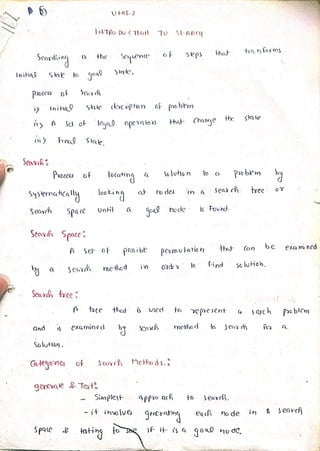 UNIT-2
INTRODUCTION TO SEARCH
Searching is the sequence of steps that transforms
initial state to goal state.
process of search
i) initial state discription of problem
ii) A set of legal operators that change the state
iii) Final state.
Search:
Process of locating a solution to a problem by
systematically looking at nodes in a search tree or
search space until a goal node is found.
Search Space:
A set of possible permutation that can be examined
by a search method in order to find solution.
Search tree:
A tree that is used to represent a serch problem
and is examined by search method to search for a
solution.
Categories of Search Methods:
generate & Test:
- Simplest approach to search.
- it involves generating each node in a search
space & testing to see if it is a goal node.